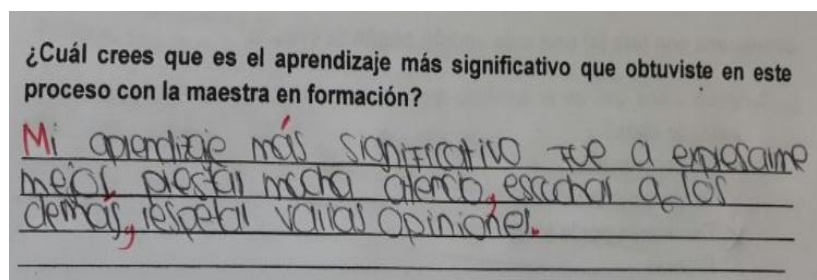 ¿Cuál crees que es el aprendizaje más significativo que obtuviste en este
proceso con la maestra en formación?
Mi aprendizaje más significativo fue a expresarme
mejor, prestar mucha atencio, escuchar a los
demás, respetar varias opiniones.